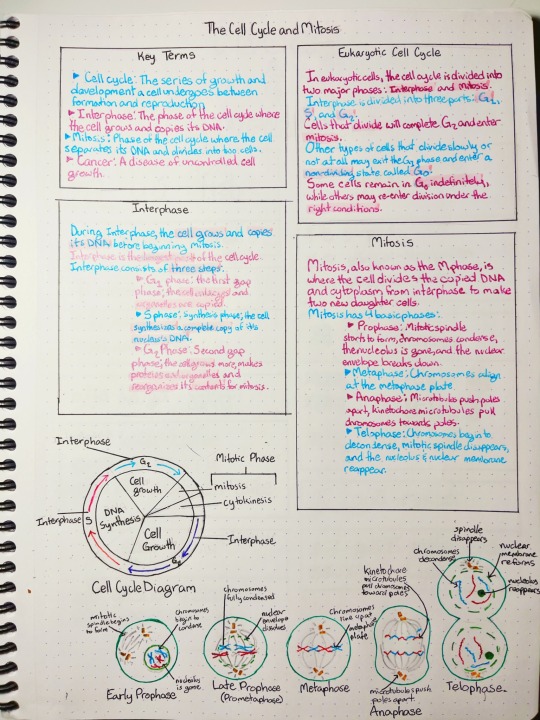 The Cell Cycle and Mitosis
Key Terms
▸ Cell cycle: The series of growth and
development a cell undergoes between
formation and reproduction
▸ Interphase: The phase of the cell cycle where
the cell grows and copies its DNA.
▸ Mitosis: Phase of the cell cycle where the cell
separates its DNA and divides into two cells.
▸ Cancer: A disease of uncontrolled cell
growth.
Eukaryotic Cell Cycle
In eukaryotic cells, the cell cycle is divided into
two major phases: Interphase and Mitosis.
Interphase is divided into three parts: G1,
S, and G2.
Cells that divide will complete G2 and enter
mitosis.
Other types of cells that divide slowly or
not at all may exit the G1 phase and enter a
non-dividing state called G0.
Some cells remain in G0 indefinitely,
while others may re-enter division under the
right conditions.
Interphase
During Interphase, the cell grows and copies
its DNA before beginning mitosis.
Interphase is the longest part of the cell cycle.
Interphase consists of three steps:
▸ G1 phase: the first gap
phase; the cell enlarges and
organelles are copied.
▸ S phase: Synthesis phase; the cell
synthesizes a complete copy of its
nucleus's DNA.
▸ G2 Phase: Second gap
phase; the cell grows more, makes
proteins and organelles and
reorganizes its contents for mitosis.
Mitosis
Mitosis, also known as the M phase, is
where the cell divides the copied DNA
and cytoplasm from interphase to make
two new daughter cells.
Mitosis has 4 basic phases:
▸ Prophase: Mitotic spindle
starts to form, chromosomes condense,
the nucleolus is gone, and the nuclear
envelope breaks down.
▸ Metaphase: Chromosomes align
at the metaphase plate
▸ Anaphase: Microtubuls push poles
apart, kinetochore microtubules pull
chromosomes towards poles.
▸ Telophase: Chromosomes begin to
decondense, mitotic spindle disappears,
and the nucleolus & nuclear membrane
reappear.
Interphase
G2
Cell
growth
Mitotic Phase
mitosis
cytokinesis
Interphase
S
DNA
Synthesis
Cell
Growth
Interphase
Cell Cycle Diagram
mitotic
spindle begins
to form
chromosomes
begin to
condense
nucleolus
is gone
Early Prophase
chromosomes
fully condensed
nuclear
envelope
dissolves
Late Prophase
(Prometaphase)
Chromosomes
line up at
metaphase
plate
Metaphase
kinetochore
microtubules
pull chromosomes
toward poles
microtubuls push
poles apart.
Anaphase
spindle
disappears
chromosomes
decondense
nuclear
membrane
reforms
nucleolus
reappears
Telophase